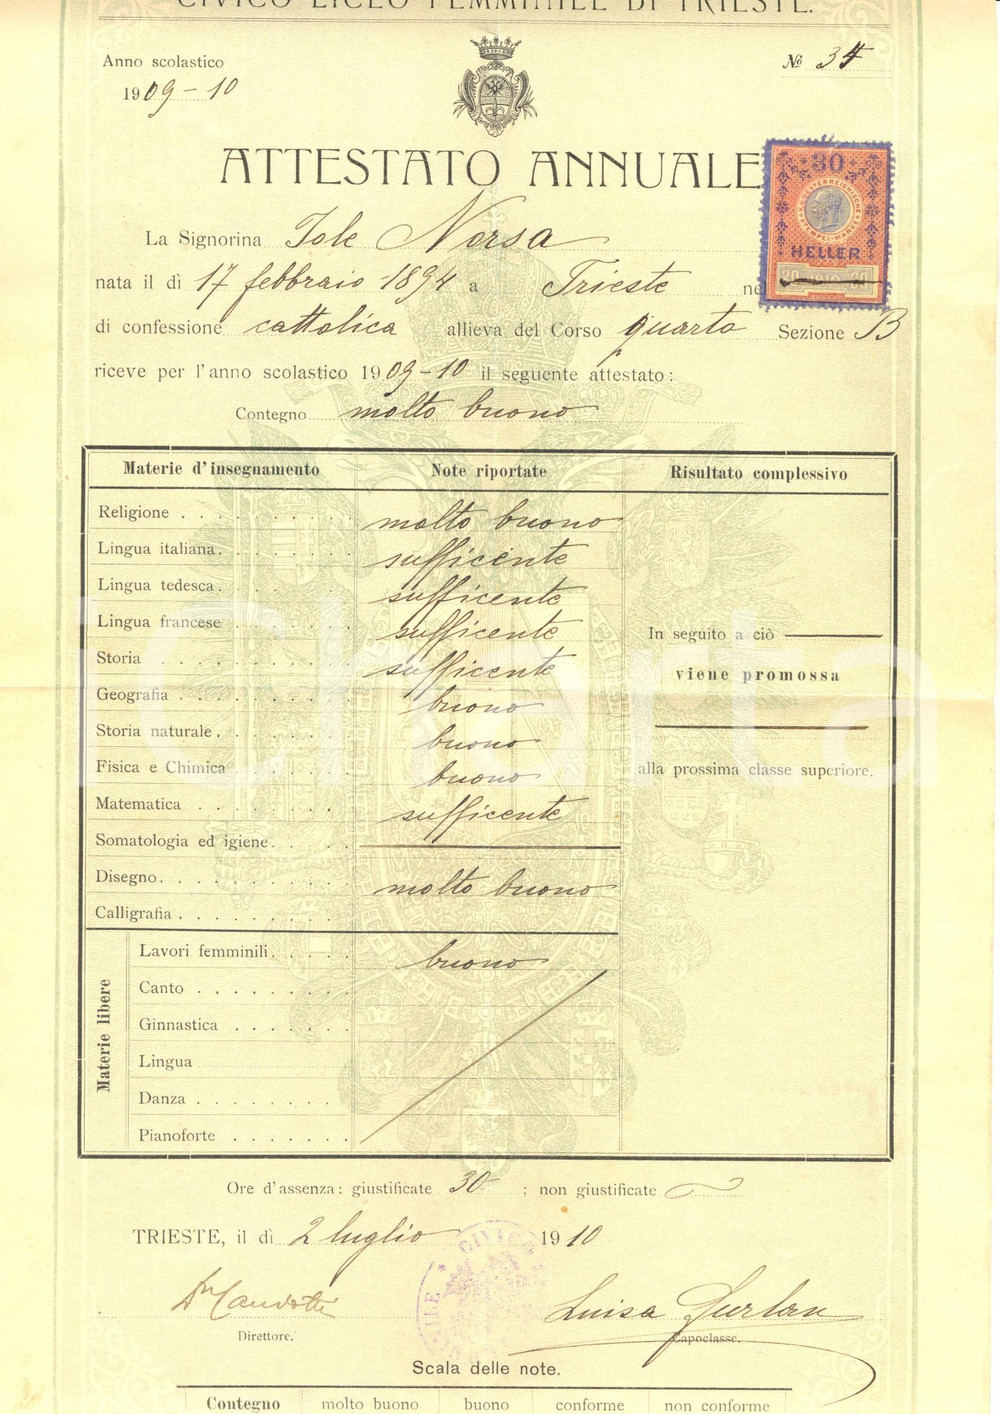 CIVICO LICEO FEMMINILE DI TRIESTE.
Anno scolastico
1909-10
№ 34
ATTESTATO ANNUALE
30
HELLER
La Signorina Iole Norsa
nata il dì 17 febbraio 1894 a Trieste ne
di confessione cattolica allieva del Corso quarto Sezione B
riceve per l'anno scolastico 1909-10 il seguente attestato:
Contegno molto buono
Materie d'insegnamento Note riportate Risultato complessivo
Religione molto buono
Lingua italiana sufficente
Lingua tedesca sufficente
Lingua francese sufficente
Storia sufficente
Geografia buono
Storia naturale buono
Fisica e Chimica buono
Matematica sufficente
Somatologia ed igiene
Disegno molto buono
Calligrafia
In seguito a ciò
viene promossa
alla prossima classe superiore.
Materie libere
Lavori femminili buono
Canto
Ginnastica
Lingua
Danza
Pianoforte
Ore d'assenza: giustificate 30 ; non giustificate
TRIESTE, il dì 2 luglio 1910
Direttore.
Luisa Furlan
Capoclasse.
Scala delle note.
Contegno molto buono buono conforme non conforme